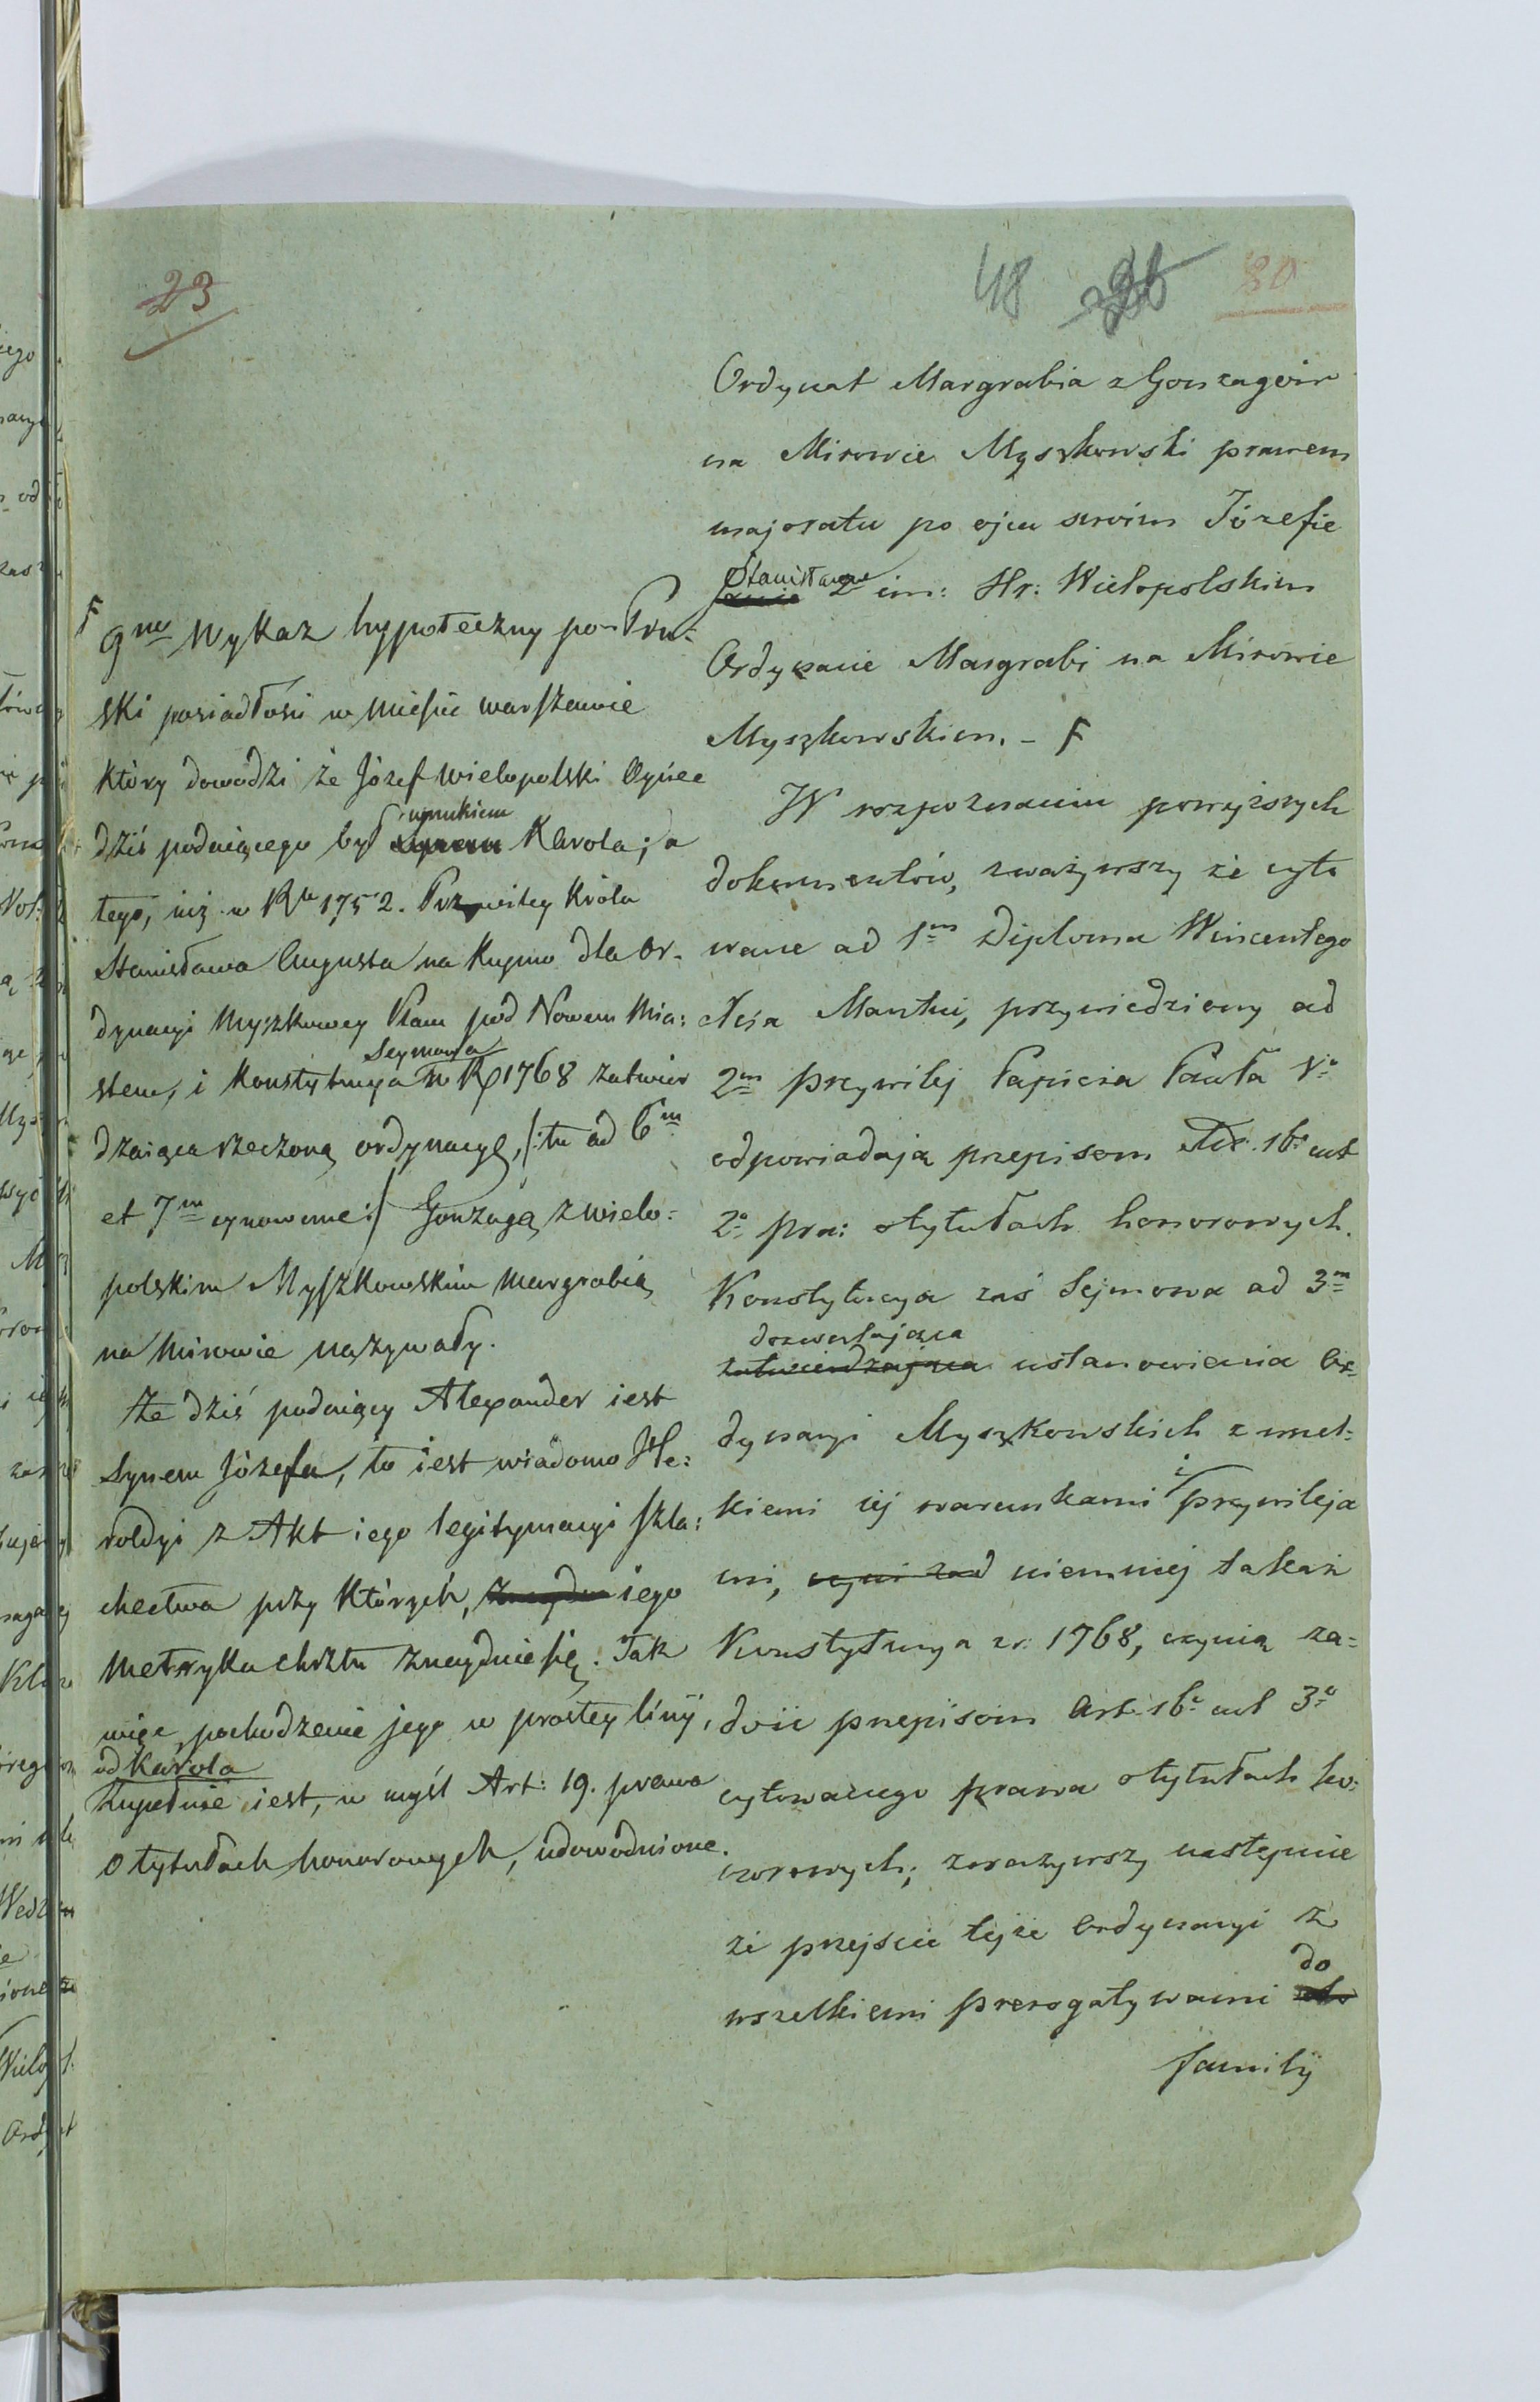 23
48
80
Ordynat Margrabia z Gonzagów
na Mirowie Myszkowski prawem
majoratu po ojcu swoim Józefie
Stanisławie
2 im: Hr: Wielopolskim
Ordynacie Margrabi na Mirowie
Myszkowskim. – F
W rozpoznaniu powyższych
dokumentów, zważywszy że cyto
wane ad 1m Diploma Wincentego
Xcia Mantui, przywiedziony ad
2m przywilej Papieża Pawła Vo
odpowiadają przepisom Art. 16o ust
2o pra: o tytułach honorowych.
Konstytucya zaś Sejmowa ad 3m
dozwalająca
zatwierdzająca ustanowienia Or=
dynacyi Myszkowskich z wszel=
kiemi jej warunkami i przywileja
mi, niemniej takaż
Konstytucya z r. 1768, czynią za=
dość przepisom Art. 16o ust 3o
cytowanego prawa o tytułach ho=
norowych; zważywszy następnie
że przejście tejże Ordynacyi z
wszelkiemi prerogatywami do
familij
F 9no Wykaz hypoteczny po-Pru=
ski posiadłości w mieście warszawie
który dowodzi że Józef Wielopolski Oyciec
wnukiem
dziś podaiącego był synem Karola; a
tego, iuż w Rku 1752. Przywiley Króla
Stanisława Augusta na Kupno dla Or=
dynacyi Myszkowey Placu pod Nowem Mia=
Seymowa
stem, i Konstytucya w R. 1768 zatwier
dzaiąca rzeczoną ordynacyę, /: tu ad 6m
et 7m :/ Gonzagą z wielo=
polskim Myszkowskim Margrabią
na Mirowie nazywały.
Że dziś podaiący Alexander iest
Synem Józefa, to iest wiadomo He=
roldyi z Akt iego legitymacyi szla=
chectwa przy których, iego
Metryka chrztu znayduie się. Tak
więc pochodzenie jego w prostey linij,
od Karola
zupełnie iest, w myśl Art: 19. prawa
o tytułach honorowych, udowodnione.